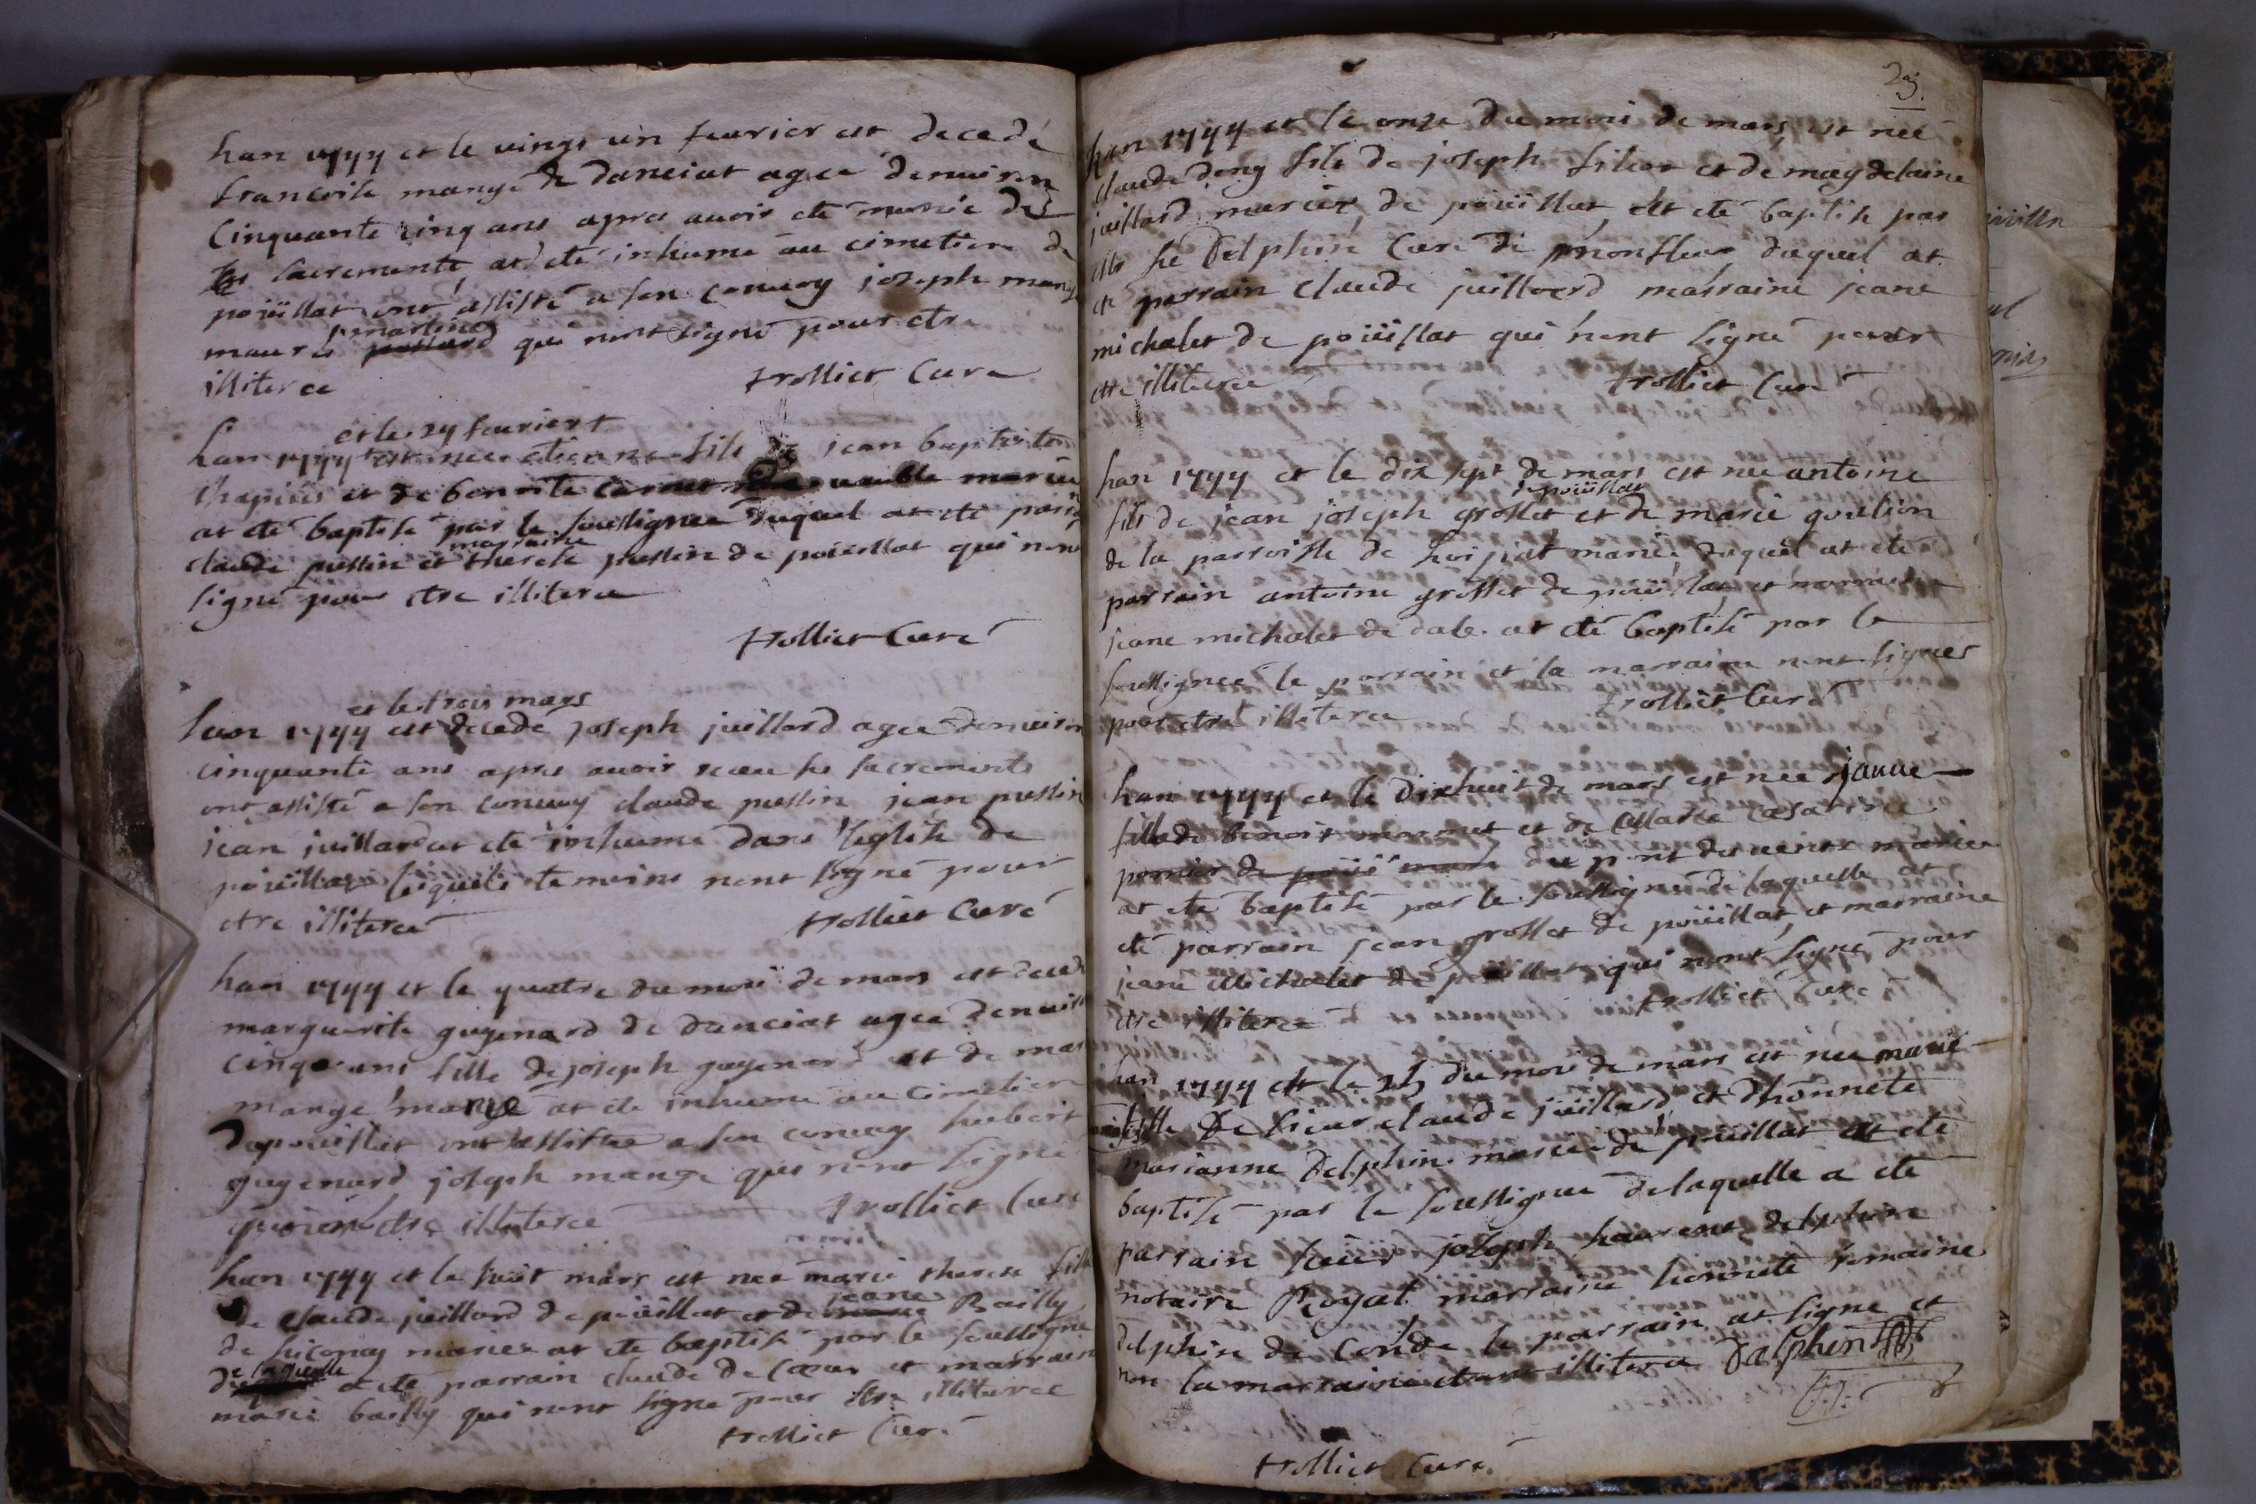 han 1744 et le vings un feurier est decedé
francoise mange de danciat agee denuiron
Cinquante cinq ans apres auoir eté munie des
sacrements, at eté inhumé au cimetiere de
poüillat ont assisté a son conuoy joseph mange
mauris martine qui nont signé pour etre
illiteree trolliet Curé
et le 24 feurier
han 1744 est nee etienne fils de jean baptiste
chapuis et de benoite mariee
at eté baptisé par le soussignee duquel at eté parrain
claude puslin et marraine therese puslin de poüillat qui nont
signé pour etre illiteree
trolliet Curé
et le trois mars
han 1744 est decede joseph juillard agee denuiron
cinquante ans apres auoir receu les sacrements
ont assisté a son conuoy claude puslin jean puslin
jean juillard at eté inhumé dans l'eglise de
poüillat lesquels temoins nont signé pour
etre illiteree trolliet Curé
han 1744 et le quatre du moi de mars est decede
marguerite guyenard de danciat agee denuiron
cinq ans fille de joseph guyenard et de marie
mange marie at eté inhumé au cimetiere
de poüillat ont assistee a son conuoy hubert
guyenard joseph mange qui nont signé
pour etre illiteree trolliet Curé
han 1744 et le huit mars est nee marie therese fille
de claude juillard de poüillat et de jeane Bailly
de mariez at eté baptisé par le soussigne
de laquelle a eté parrain claude de Coeur et marraine
marie bailly qui nont signé pour etre illiteree
trolliet Curé
23.
han 1744 et le onze du moi de mars est neé
claude fils de joseph et de magdelaine
juillard mariez de poüillat, at eté baptisé par
Delphin Curé de duquel at
eté parrain claude juillard marraine jeane
michalet de poüillat qui nont signé pour
etre illiteree trolliet Curé
han 1744 et le dix sept de mars est nee antoine
fils de jean joseph grosset de poüillat et de marie
de la parroisse de mariée, duquel at eté
parrain antoine grosset de poüillat et marraine
jeane michalet de at eté baptisé par le
soussignee le parrain et la marraine nont signes
pour etre illiteree trolliet Curé
han 1744 et le Dixhuit de mars est nee jeanne
fille de Benoit et de
du pont des mariee
at eté baptisé par le soussigné de laquelle at
eté parrain jean grosset de poüillat, et marraine
jeane Michalet de poüillat qui nont signé pour
etre illiteree trolliet Curé
han 1744 et le 25 du moi de mars est nee marie
fille De sieur claude juillard et Dhonnete
marianne Delphin mariee de poüillat at eté
baptisé par le soussignee de laquelle a eté
parrain sieur joseph haurent delphin
notaire Royal marraine honnete romaine
delphin de Conde le parrain at signe et
non la marraine etant illiteree Dalphin
trolliet Curé